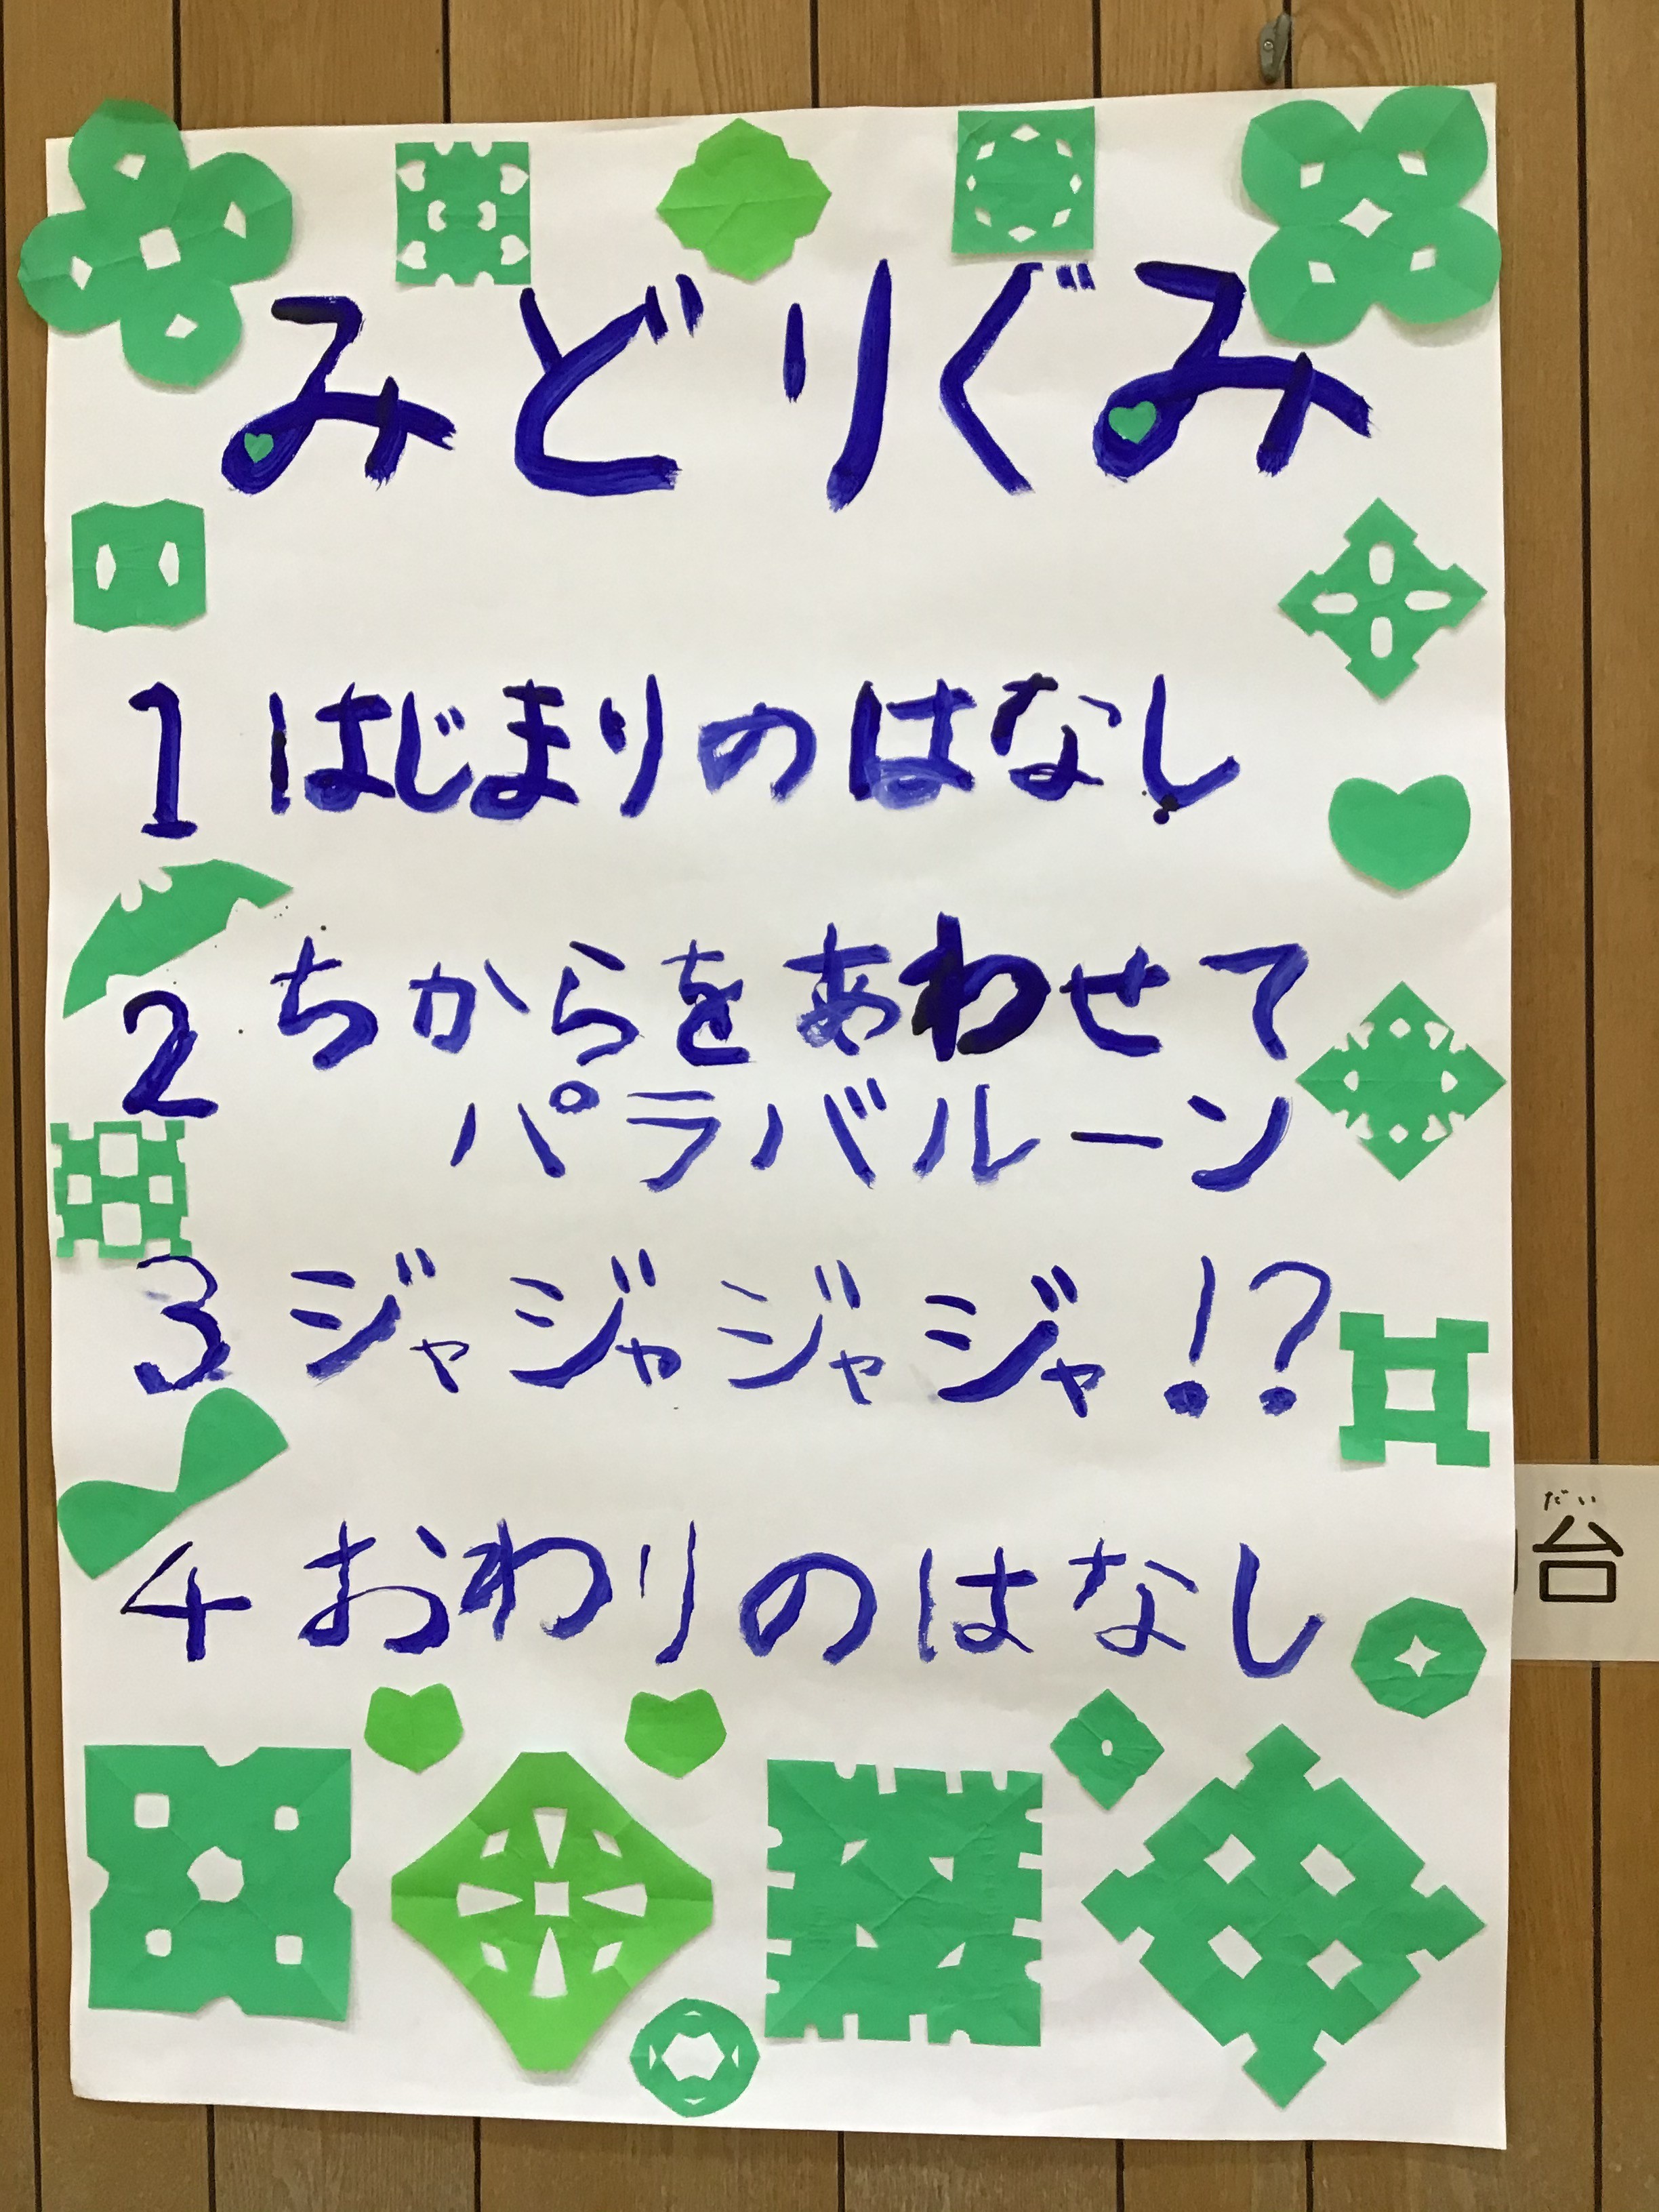 みどりぐみ
1 はじまりのはなし
2 ちからをあわせて
パラバルーン
3 ジャジャジャジャ!?
4 おわりのはなし
だい
台